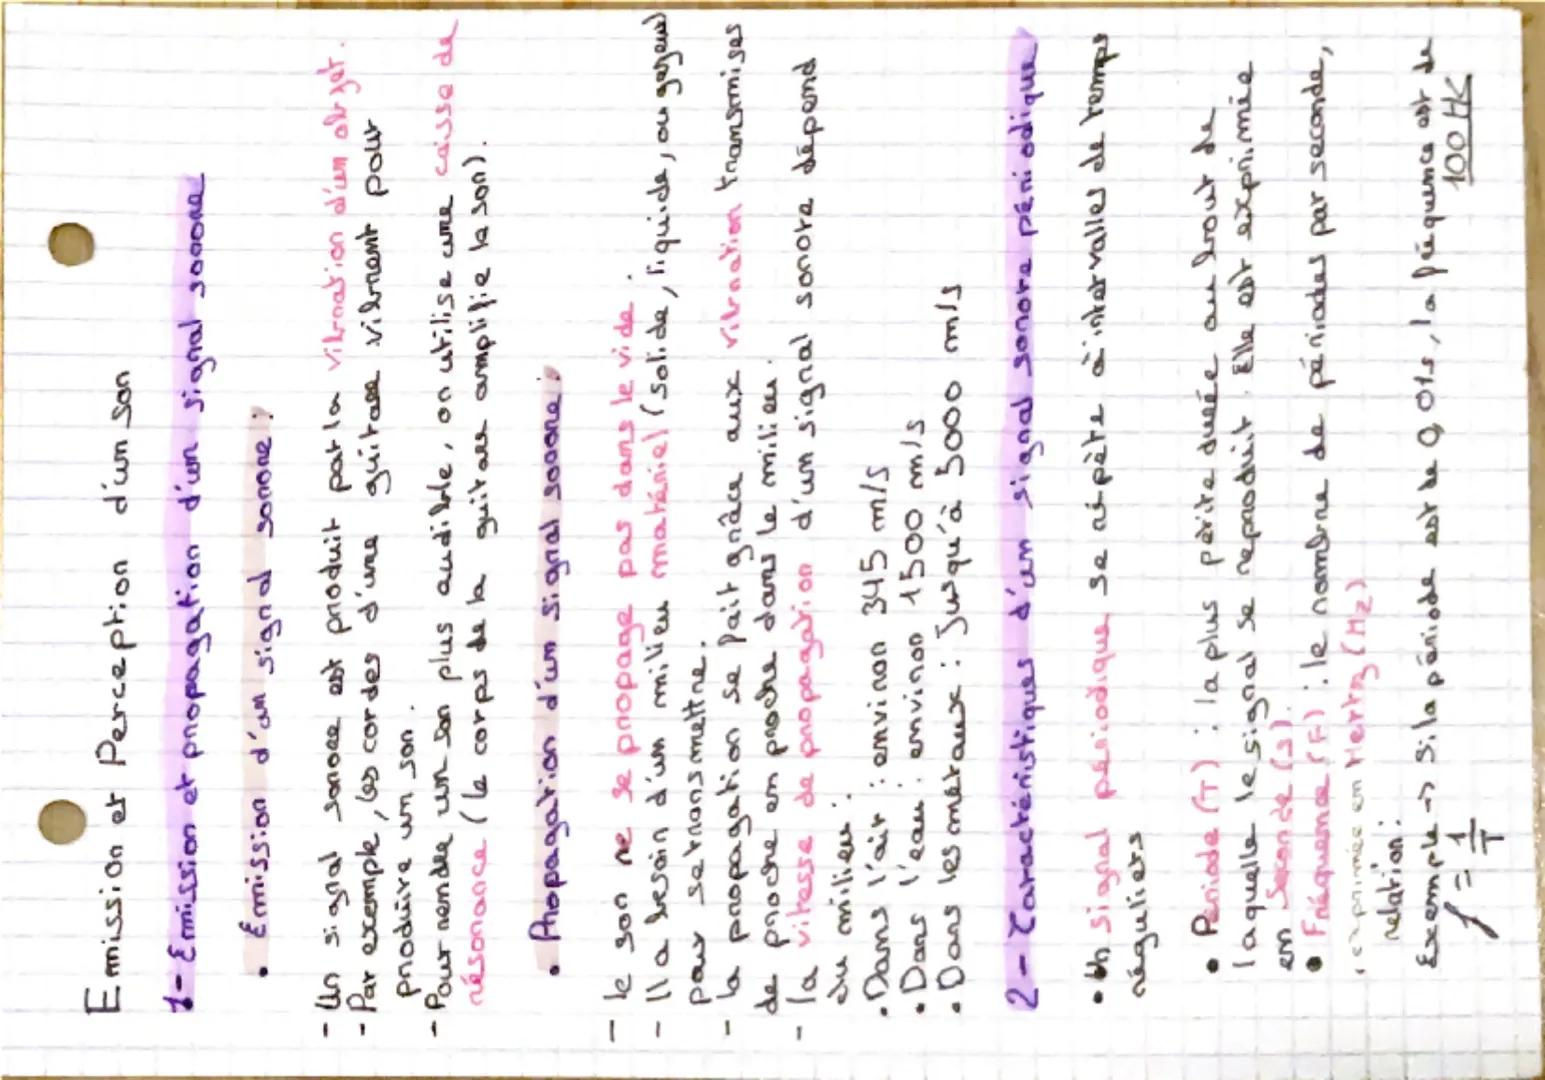 Emission et Perception d'un son
1- Émission et propagation d'un signal sonore
• Émission d'un signal sonore :
- Un signal sonore est produit par la vibration d'un objet.
- Par exemple, les cordes d'une guitare vibrent pour
produire un son.
- Pour rendre un son plus audible, on utilise une caisse de
résonance (le corps de la guitare amplifie le son).
• Propagation d'un signal sonore :
- le son ne se propage pas dans le vide.
- Il a besoin d'un milieu matériel (solide, liquide, ou gazeux)
pour se transmettre.
- la propagation se fait grâce aux vibration transmises
de proche en proche dans le milieu.
- la vitesse de propagation d'un signal sonore dépend
du milieu :
• Dans l'air : environ 345 m/s
• Dans l'eau : environ 1500 m/s
• Dans les métaux : jusqu'à 5000 m/s
2- Caractéristiques d'un signal sonore périodique
• Un signal périodique se répète à intervalles de temps
réguliers
• Période (T) : la plus petite durée au bout de
laquelle le signal se reproduit. Elle est exprimée
en seconde (s).
• Fréquence (F) : le nombre de périodes par seconde,
exprimée en Hertz (Hz)
relation :
Exemple → Si la période est de 0,01s, la fréquence est de
f = 1/T 100 Hz